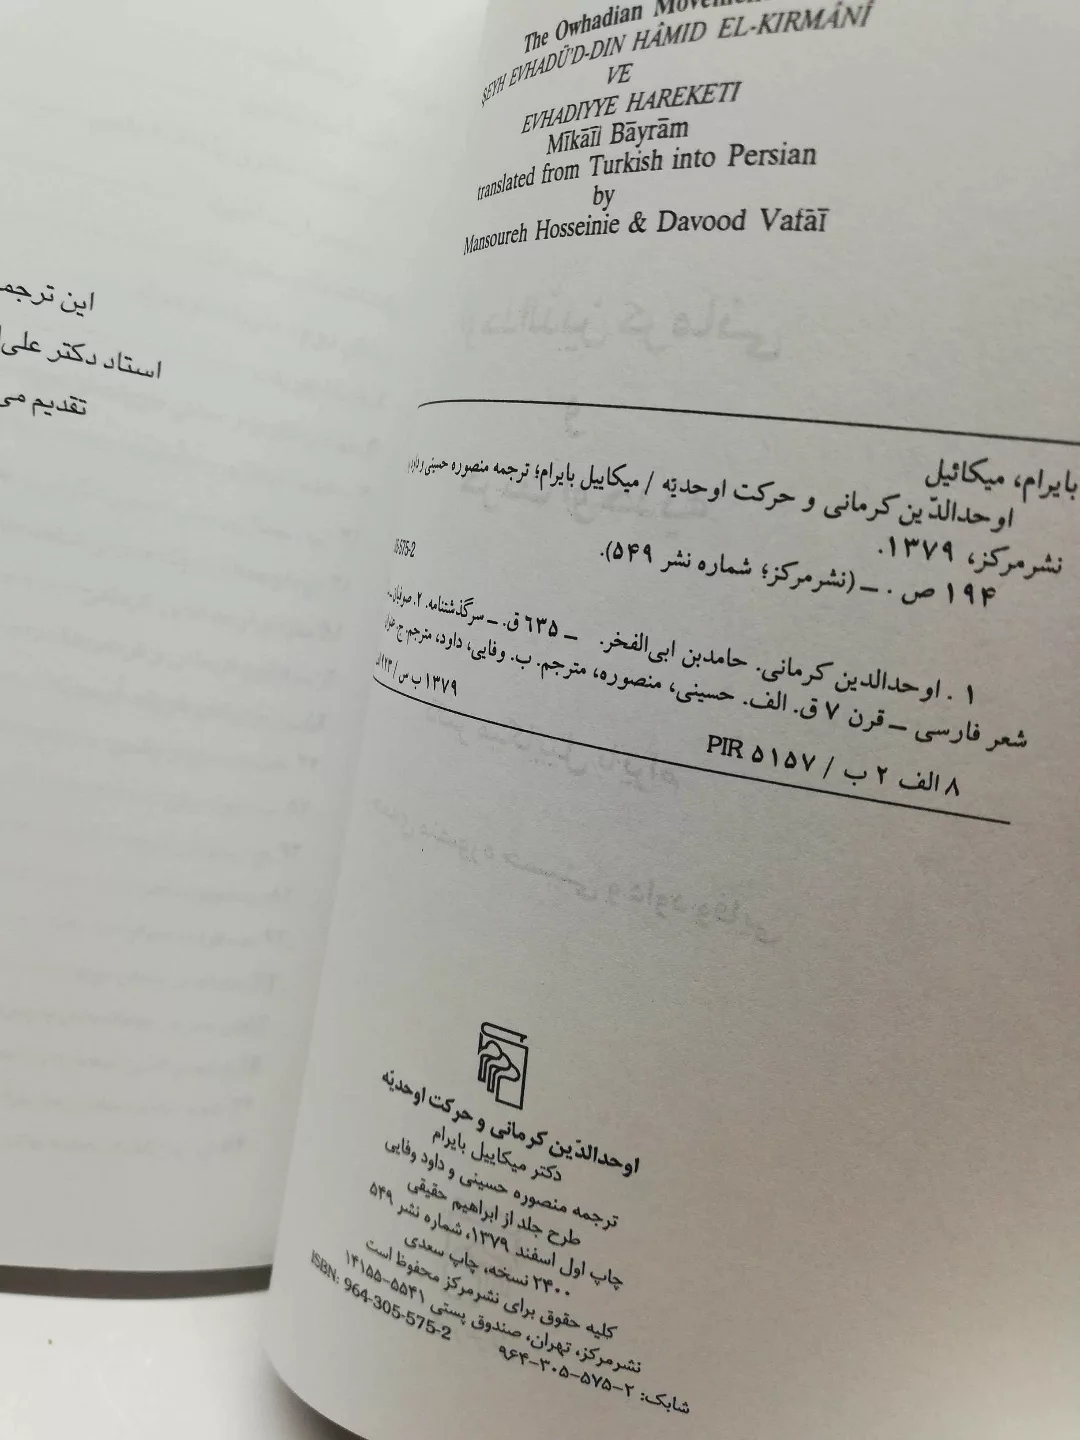 The Owhadian
ŞEYH EVHADÜ'D-DIN HÂMID EL-KIRMÂNÎ
VE
EVHADIYYE HAREKETI
Mīkāīl Bāyrām
translated from Turkish into Persian
by
Mansoureh Hosseinie & Davood Vafāī
بایرام، میکائیل
اوحدالدّین کرمانی و حرکت اوحدیّه / میکاییل بایرام؛ ترجمه منصوره حسینی و داود
نشرمرکز، ۱۳۷۹.
۱۹۴ ص. ــ (نشرمرکز؛ شماره نشر ۵۴۹).
575-2
۱. اوحدالدین کرمانی. حامدبن ابی‌الفخر. ــ ۶۳۵ ق. ــ سرگذشتنامه. ۲. صوفیان ــ
شعر فارسی ــ قرن ۷ ق. الف. حسینی، منصوره، مترجم. ب. وفایی، داود، مترجم. ج. عنوان
۱۳۷۹ ب س /
۸ الف ۲ ب / PIR ۵۱۵۷
اوحدالدّین کرمانی و حرکت اوحدیّه
دکتر میکاییل بایرام
ترجمه منصوره حسینی و داود وفایی
طرح جلد از ابراهیم حقیقی
چاپ اول اسفند ۱۳۷۹، شماره نشر ۵۴۹
۲۴۰۰ نسخه، چاپ سعدی
کلیه حقوق برای نشرمرکز محفوظ است
نشرمرکز، تهران، صندوق پستی ۵۵۴۱–۱۴۱۵۵
ISBN: 964-305-575-2
شابک: ۲–۵۷۵–۳۰۵–۹۶۴
این
استاد دکتر
تقدیم